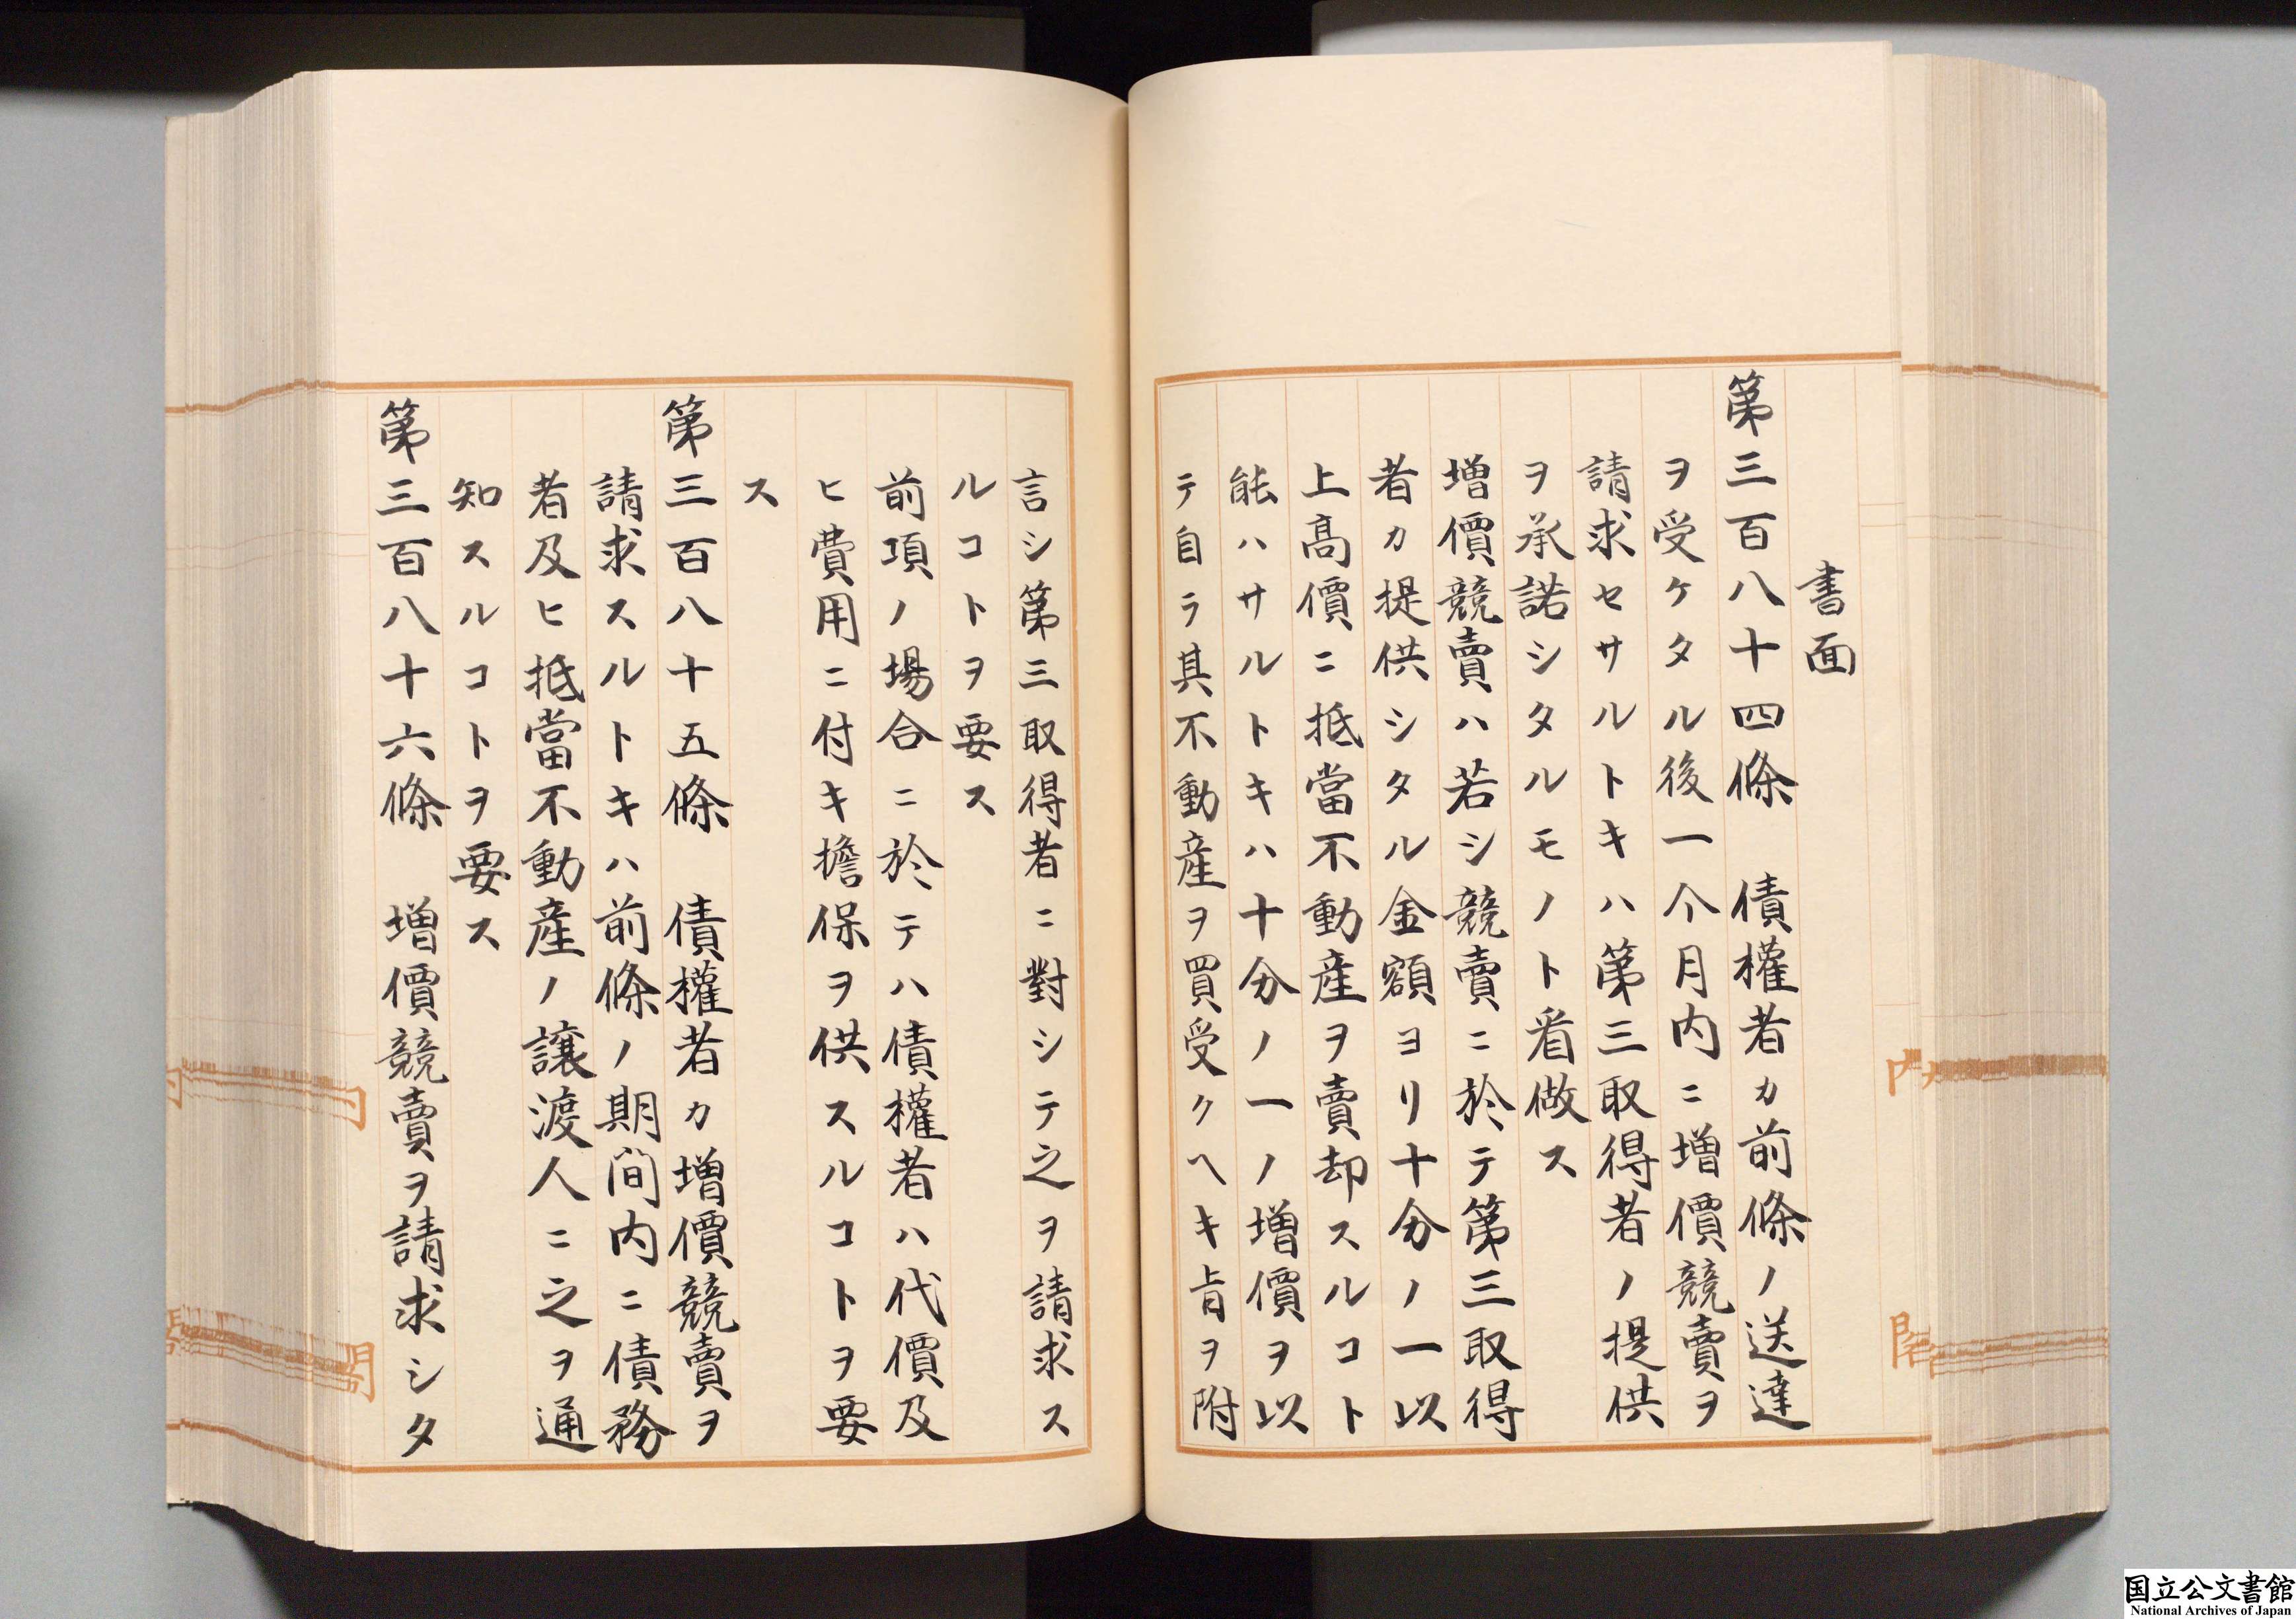 書面
第三百八十四條　債權者カ前條ノ送達
ヲ受ケタル後一个月内ニ增價競賣ヲ
請求セサルトキハ第三取得者ノ提供
ヲ承諾シタルモノト看做ス
增價競賣ハ若シ競賣ニ於テ第三取得
者カ提供シタル金額ヨリ十分ノ一以
上高價ニ抵當不動產ヲ賣却スルコト
能ハサルトキハ十分ノ一ノ增價ヲ以
テ自ラ其不動產ヲ買受クヘキ旨ヲ附
言シ第三取得者ニ對シテ之ヲ請求ス
ルコトヲ要ス
前項ノ場合ニ於テハ債權者ハ代價及
ヒ費用ニ付キ擔保ヲ供スルコトヲ要
ス
第三百八十五條　債權者カ增價競賣ヲ
請求スルトキハ前條ノ期間内ニ債務
者及ヒ抵當不動產ノ讓渡人ニ之ヲ通
知スルコトヲ要ス
第三百八十六條　增價競賣ヲ請求シタ
国立公文書館
National Archives of Japan